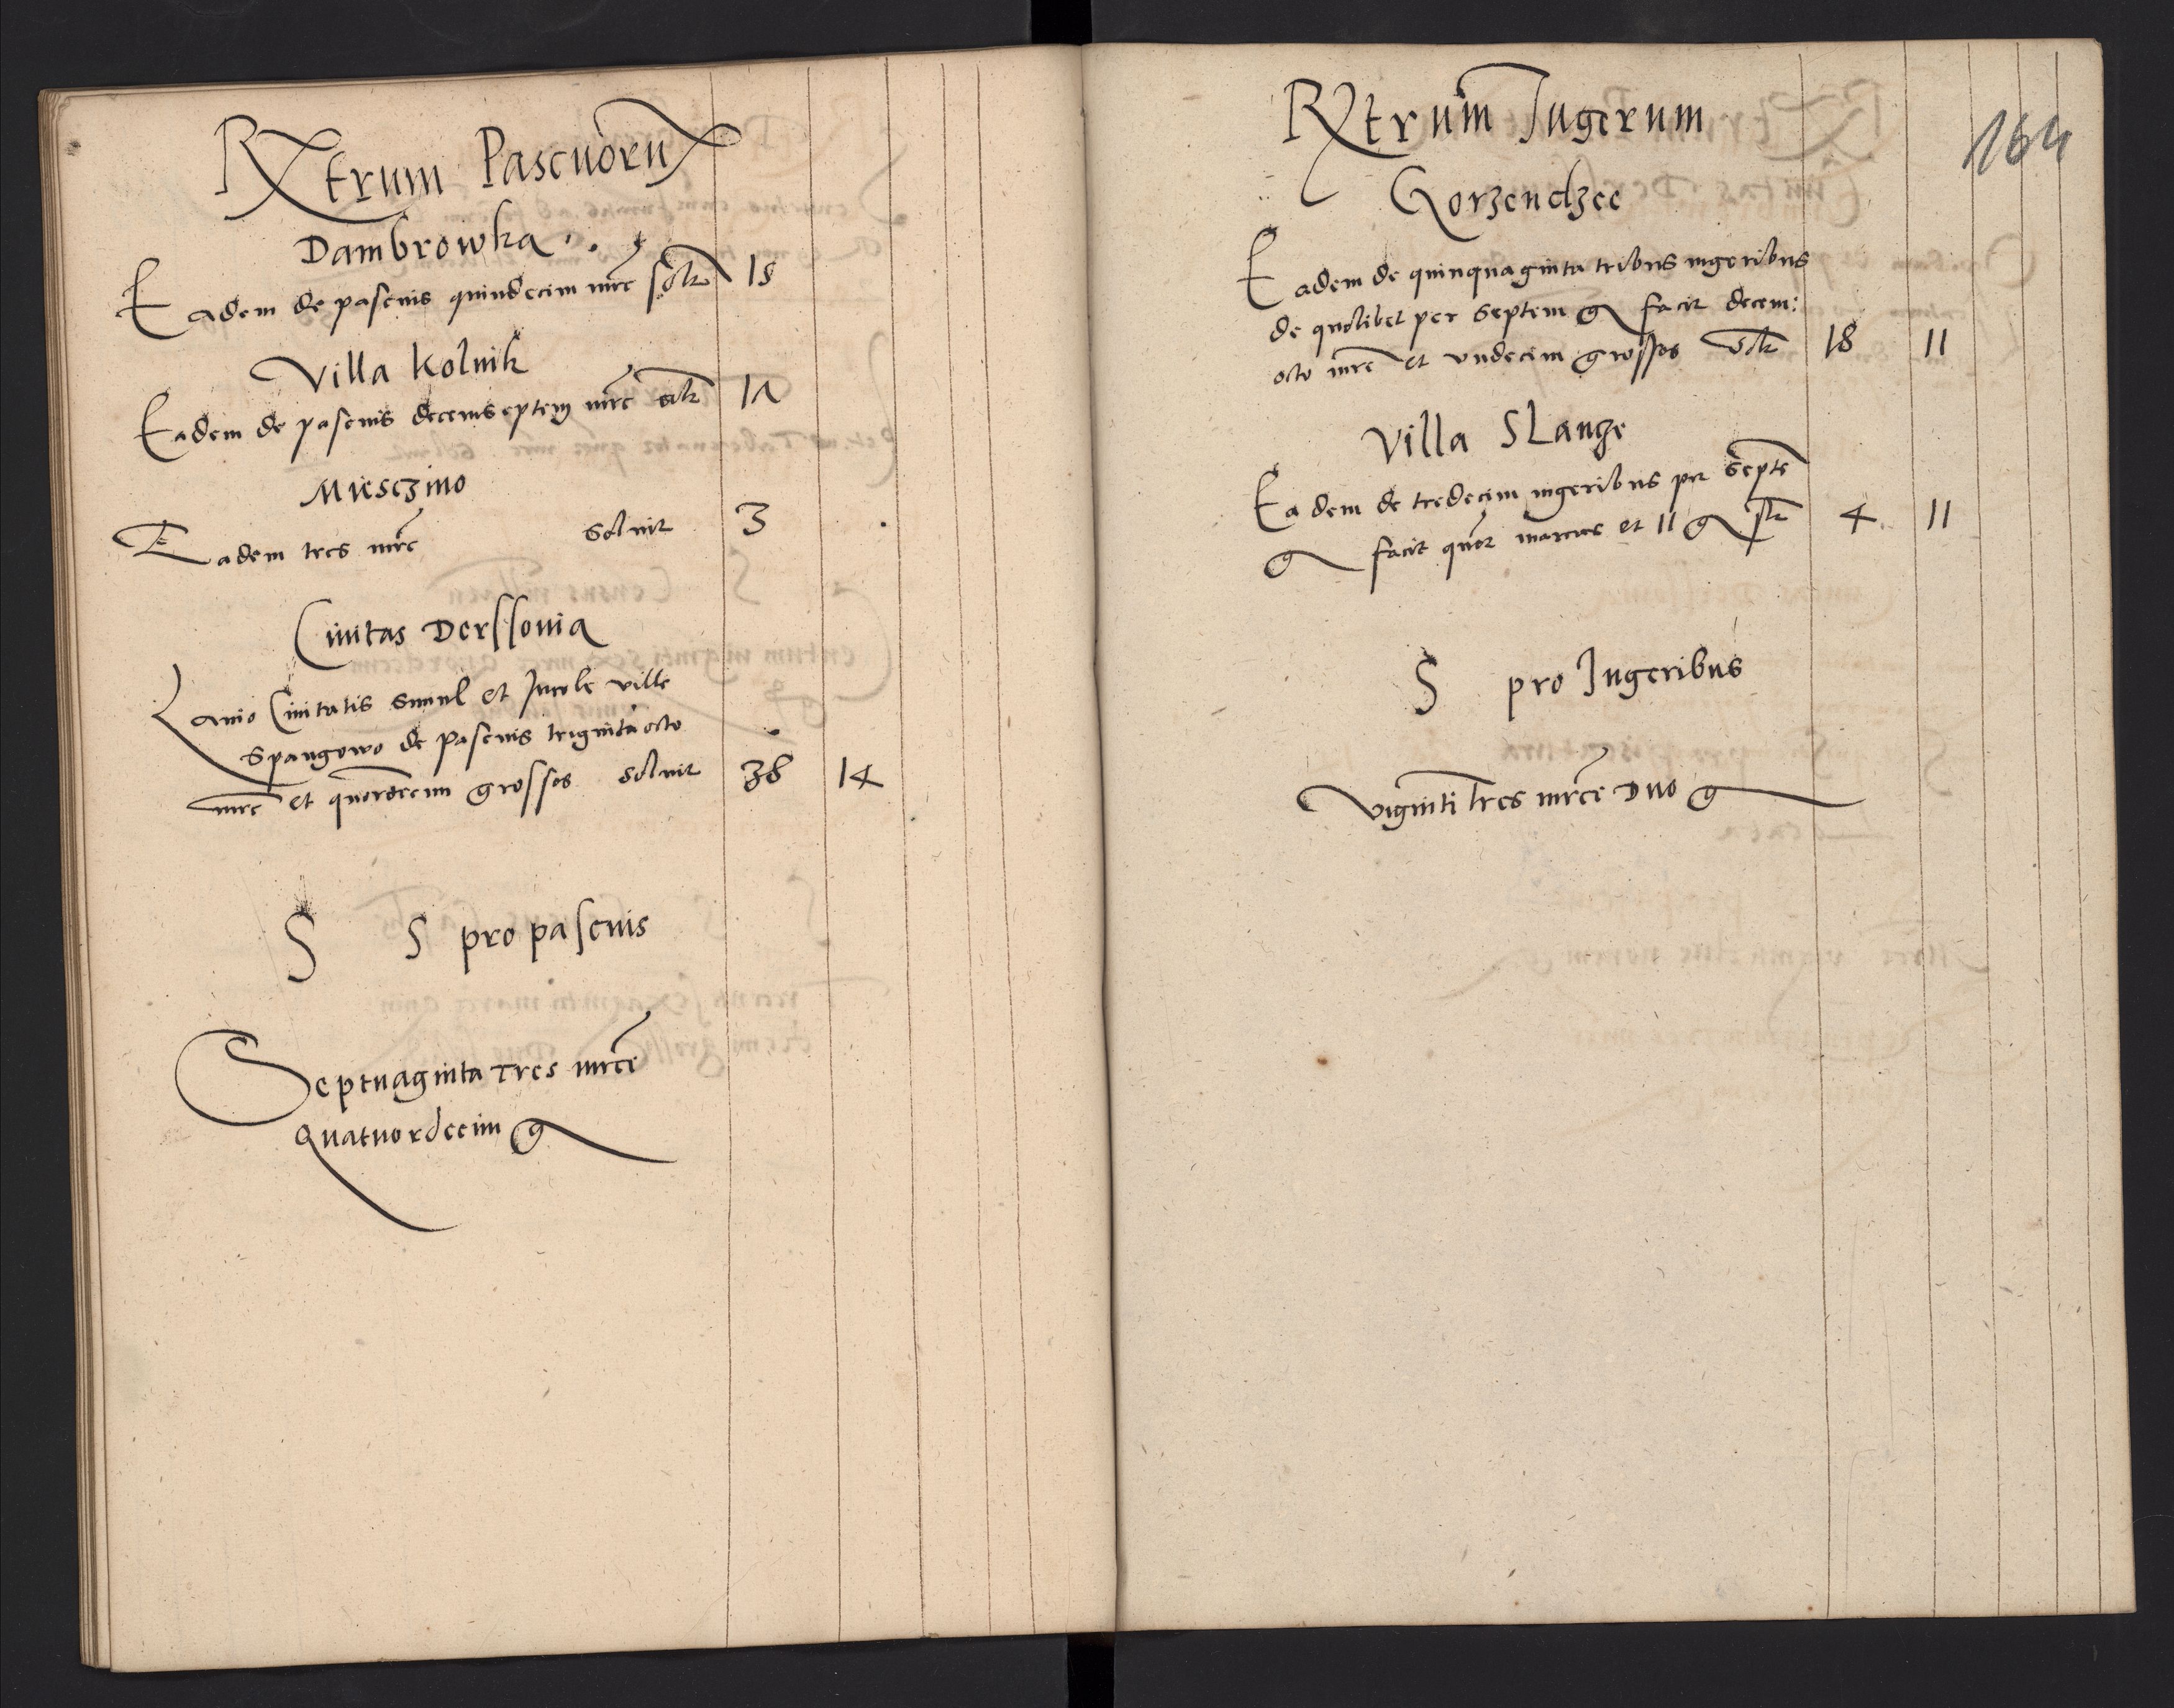 Rxtrum Pascuoru
Dambrowka
Eadem de pascuis quindecim mrc solt 15
Villa Kolnik
Eadem de pascuis decemseptem mrc solt 17
Miesczino
Eadem tres mrc soluit 3
Ciuitas Derssouia
Lanio Ciuitatis simul et Incole ville
Spangowo de pascuis triginta octo
mrc et quordecim grossos soluit 38 14
S S pro pascuis
Septuaginta Tres mrce
Quatuordecim g
Rxtrum Iugerum
164
Gorzendzee
Eadem de quinquaginta tribus iugeribus
de quolibet per septem g facit decem:
octo mrc et vndecim grossos solt 18 11
Villa SLanze
Eadem de tredecim iugeribus per septe
g facit quor marcas et 11 g slt 4 11
S pro Iugeribus
viginti tres mrce Duo g